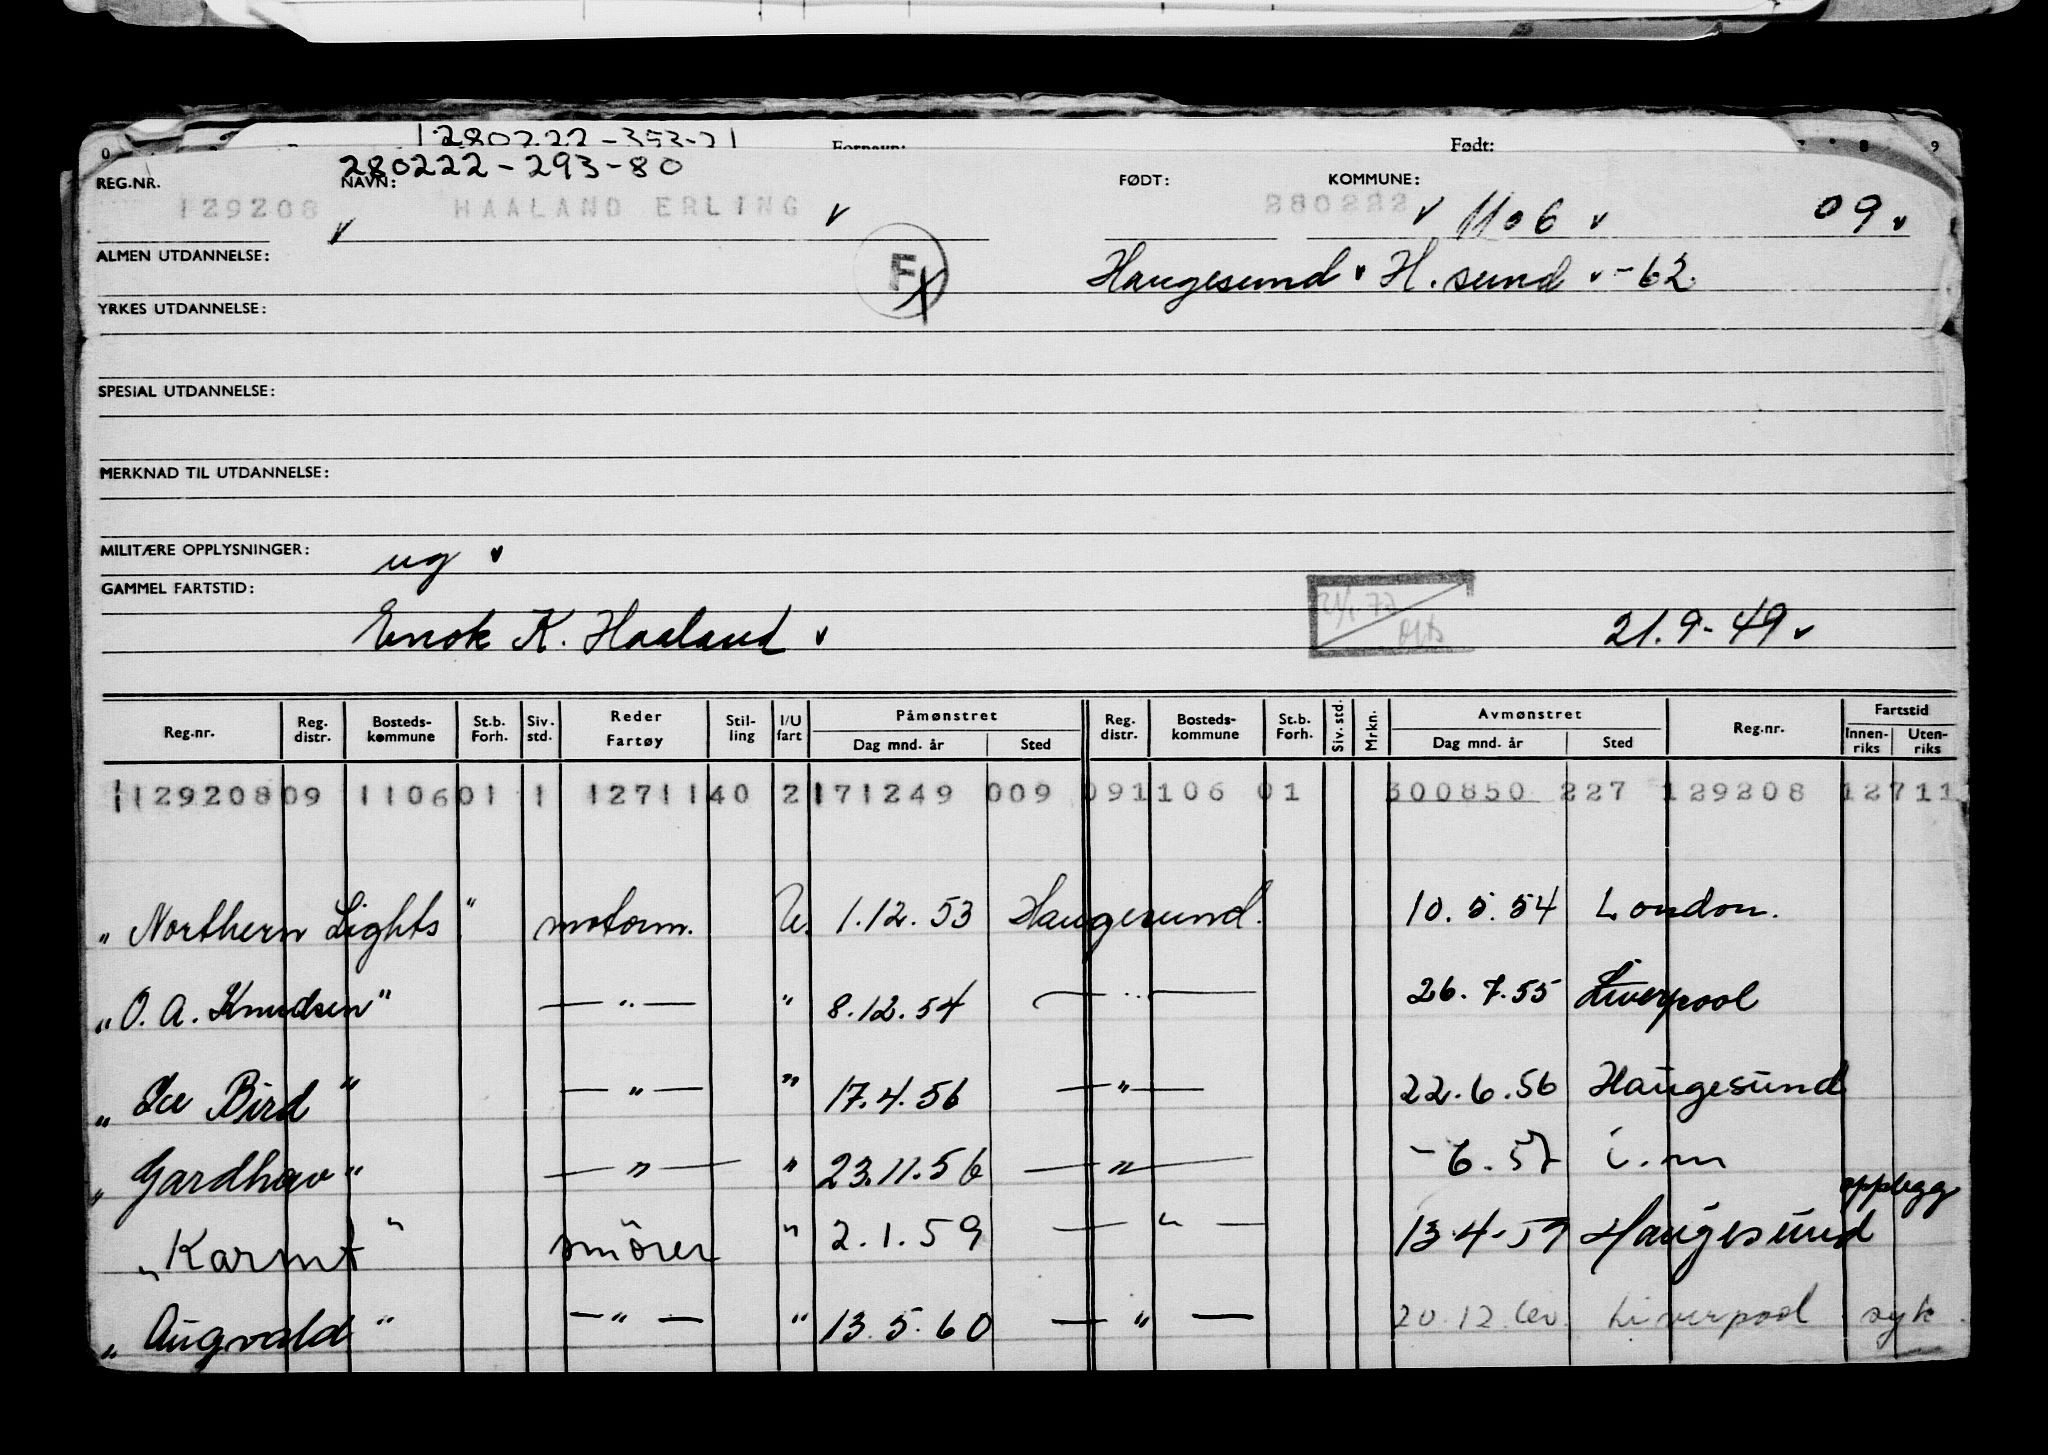 280222-353-21
Fornavn: Født: 8 9
280222-293-80
REG.NR. NAVN: FØDT: KOMMUNE:
129208 HAALAND ERLING 280222 1106 09
ALMEN UTDANNELSE: F Haugesund H.sund -62
YRKES UTDANNELSE:
SPESIAL UTDANNELSE:
MERKNAD TIL UTDANNELSE:
MILITÆRE OPPLYSNINGER: ug
GAMMEL FARTSTID:
Enok K. Haaland 21.9-49
Reg.nr. Reg. distr. Bosteds-kommune St.b. Forh. Siv. std. Reder Fartøy Stil-ling I/U fart Påmønstret Dag mnd. år Sted Reg. distr. Bosteds-kommune St.b. Forh. Siv. std. Mrkn. Avmønstret Dag mnd. år Sted Reg.nr. Fartstid Innen-riks Uten-riks
112920809 110601 1 1271140 2 171249 009 091106 01 300850 227 129208 12711
„Northern Lights" motorm. U. 1.12.53 Haugesund. 10.5.54 London.
„O. A. Knudsen" —"— " 8.12.54 —"— 26.7.55 Liverpool
„Ice Bird" —"— " 17.4.56 —"— 22.6.56 Haugesund
„Gardhav" —"— " 23.11.56 —"— -6.57 i.m
opplegg
„Karmt" smörer " 2.1.59 —"— 13.4.59 Haugesund
„Augvald" —"— " 13.5.60 —"— 20.12.60. Liverpool syk.